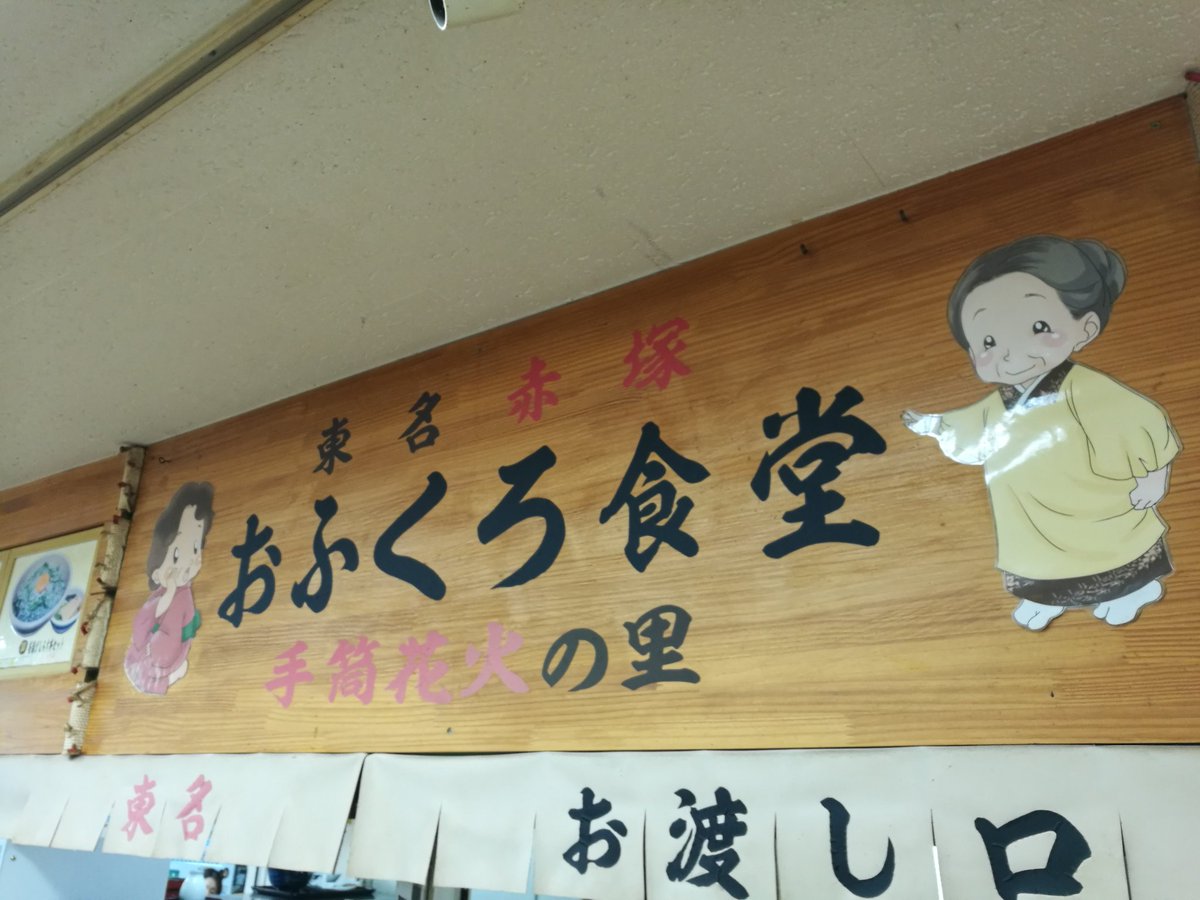 東名赤塚
おふくろ食堂
手筒花火の里
東名
お渡し口